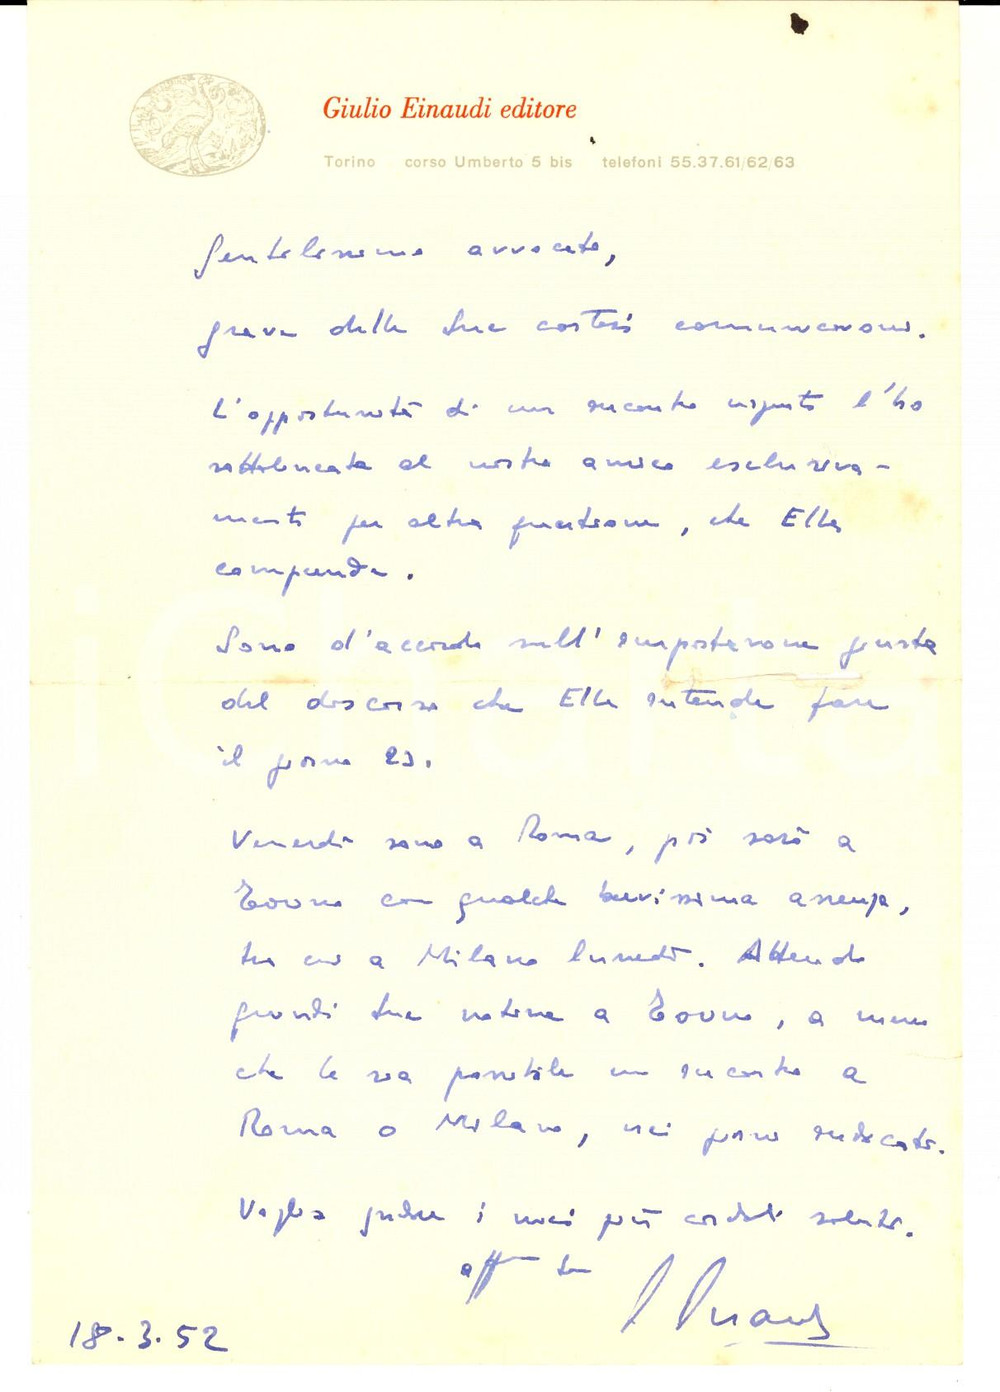 Giulio Einaudi editore
Torino corso Umberto 5 bis telefoni 55.37.61/62/63
Gentilissimo avvocato,
grazie della Sua cortese comunicazione.
L'opportunità di un incontro urgente l'ho
sottolineata al nostro amico esclusiva-
mente per altra questione, che Ella
comprende.
Sono d'accordo sull'impostazione giusta
del discorso che Ella intende fare
il giorno 23.
Venerdì sono a Roma, poi sarò a
Torino con qualche brevissima assenza,
tra cui a Milano lunedì. Attendo
quindi Sue notizie a Torino, a meno
che le sia possibile un incontro a
Roma o Milano, nei giorni indicati.
Voglia gradire i miei più cordiali saluti.
aff.mo Suo
Einaudi
18.3.52
iCharta